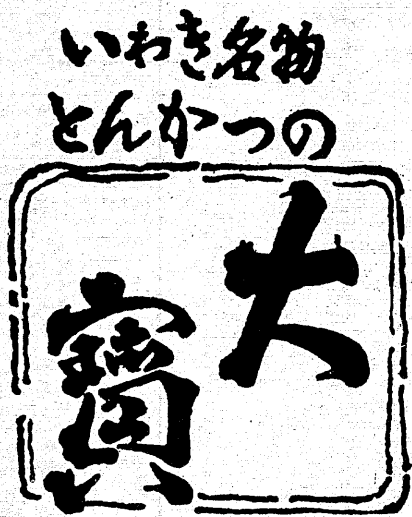 いわき名物
とんかつの
大寳